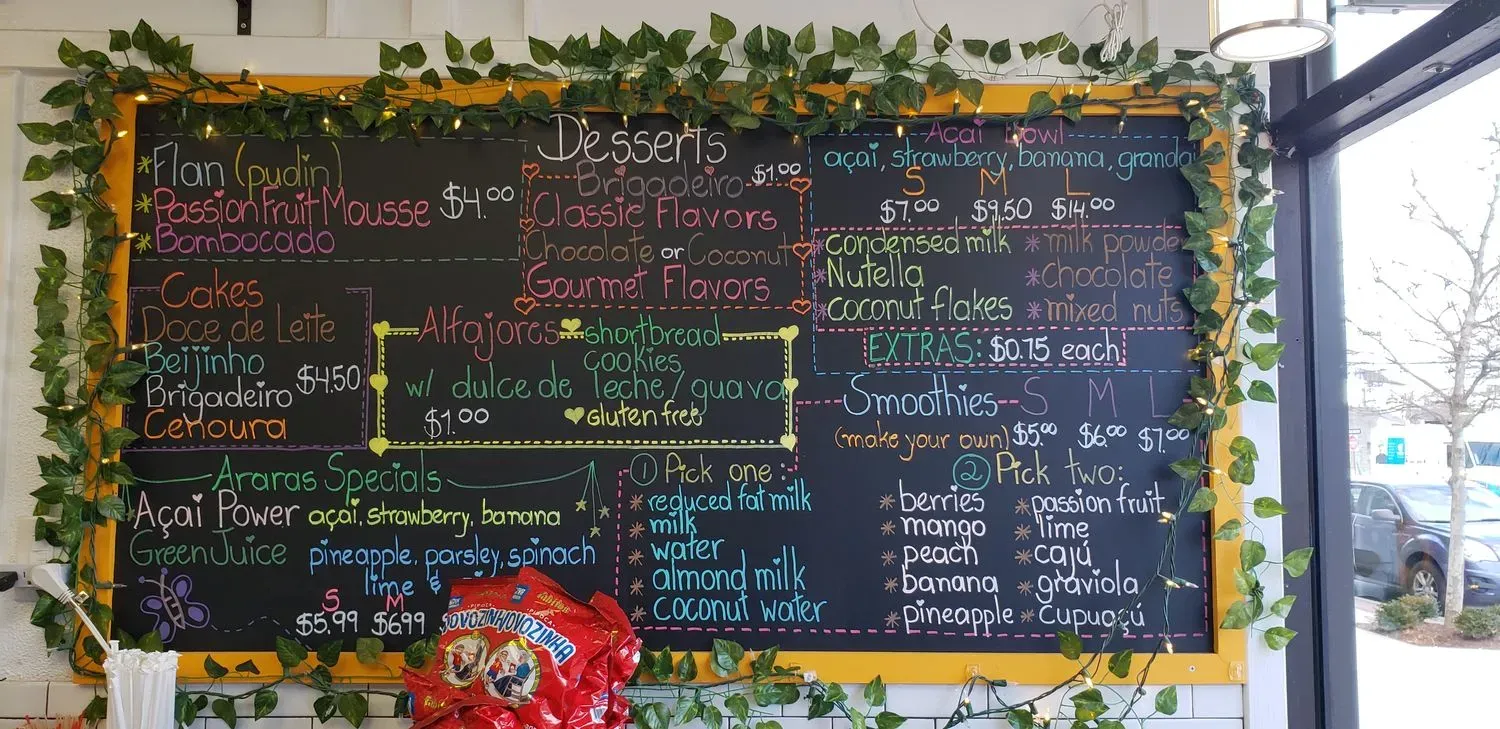 *Flan (pudin)
*Passion Fruit Mousse $4.00
*Bombocado
Cakes
Doce de Leite
Beijinho
Brigadeiro $4.50
Cenoura
Desserts
Brigadeiro $1.00
Classic Flavors
Chocolate or Coconut
Gourmet Flavors
Alfajores shortbread
cookies
w/ dulce de leche/guava
$1.00 gluten free
Acai Bowl
açai, strawberry, banana, granola
S M L
$7.00 $9.50 $14.00
*condensed milk *milk powder
*Nutella *chocolate
*coconut flakes *mixed nuts
EXTRAS: $0.75 each
Smoothies S M L
(make your own) $5.00 $6.00 $7.00
1 Pick one:
*reduced fat milk
*milk
*water
*almond milk
*coconut water
2 Pick two:
*berries *passion fruit
*mango *lime
*peach *cajú
*banana *graviola
*pineapple *cupuaçú
Araras Specials
Açai Power açai, strawberry, banana
Green Juice pineapple, parsley, spinach
lime &
S M
$5.99 $6.99
PIPOCA
VOVOZINHA